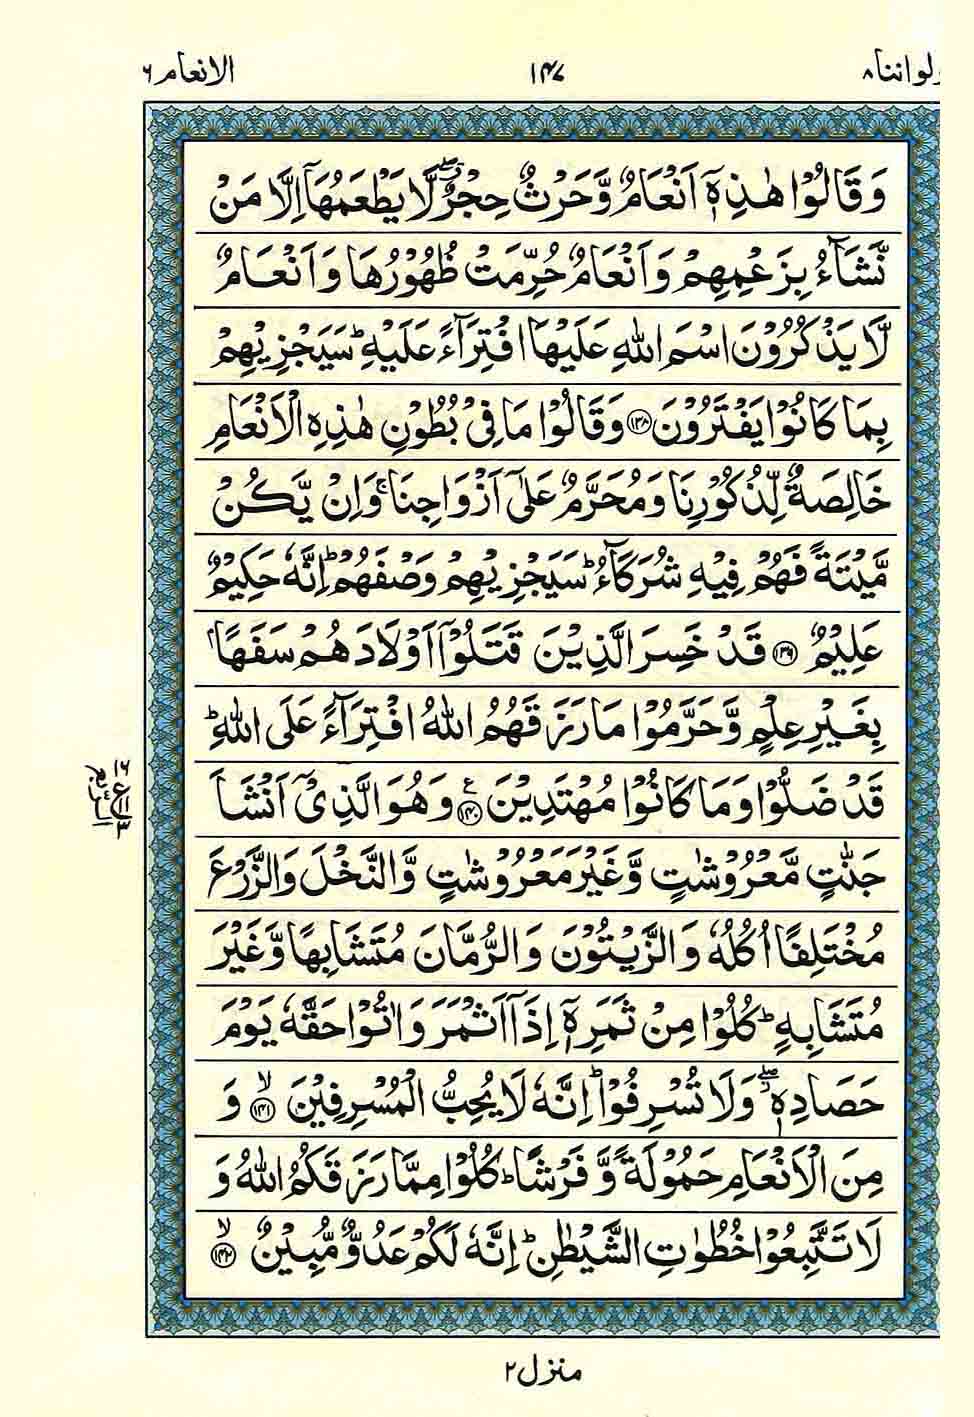 ولواننا ٨ ١٤٧ الانعام ٦
وَقَالُوْا هٰذِهٖۤ اَنْعَامٌ وَّحَرْثٌ حِجْرٌ ۖۗ لَّا يَطْعَمُهَاۤ اِلَّا مَنْ
نَّشَآءُ بِزَعْمِهِمْ وَاَنْعَامٌ حُرِّمَتْ ظُهُوْرُهَا وَاَنْعَامٌ
لَّا يَذْكُرُوْنَ اسْمَ اللهِ عَلَيْهَا افْتِرَآءً عَلَيْهِ ؕ سَيَجْزِيْهِمْ
بِمَا كَانُوْا يَفْتَرُوْنَ ﴿١٣٨﴾ وَقَالُوْا مَا فِيْ بُطُوْنِ هٰذِهِ الْاَنْعَامِ
خَالِصَةٌ لِّذُكُوْرِنَا وَمُحَرَّمٌ عَلٰٓى اَزْوَاجِنَا ۚ وَاِنْ يَّكُنْ
مَّيْتَةً فَهُمْ فِيْهِ شُرَكَآءُ ؕ سَيَجْزِيْهِمْ وَصْفَهُمْ ؕ اِنَّهٗ حَكِيْمٌ
عَلِيْمٌ ﴿١٣٩﴾ قَدْ خَسِرَ الَّذِيْنَ قَتَلُوْۤا اَوْلَادَهُمْ سَفَهًۢا
بِغَيْرِ عِلْمٍ وَّحَرَّمُوْا مَا رَزَقَهُمُ اللهُ افْتِرَآءً عَلَى اللهِ ؕ
قَدْ ضَلُّوْا وَمَا كَانُوْا مُهْتَدِيْنَ ﴿١٤٠﴾ ع وَهُوَ الَّذِيْۤ اَنْشَاَ
جَنّٰتٍ مَّعْرُوْشٰتٍ وَّغَيْرَ مَعْرُوْشٰتٍ وَّالنَّخْلَ وَالزَّرْعَ
مُخْتَلِفًا اُكُلُهٗ وَالزَّيْتُوْنَ وَالرُّمَّانَ مُتَشَابِهًا وَّغَيْرَ
مُتَشَابِهٍ ؕ كُلُوْا مِنْ ثَمَرِهٖۤ اِذَاۤ اَثْمَرَ وَاٰتُوْا حَقَّهٗ يَوْمَ
حَصَادِهٖ ۖۗ وَلَا تُسْرِفُوْا ؕ اِنَّهٗ لَا يُحِبُّ الْمُسْرِفِيْنَ ۙ﴿١٤١﴾ وَ
مِنَ الْاَنْعَامِ حَمُوْلَةً وَّفَرْشًا ؕ كُلُوْا مِمَّا رَزَقَكُمُ اللهُ وَ
لَا تَتَّبِعُوْا خُطُوٰتِ الشَّيْطٰنِ ؕ اِنَّهٗ لَكُمْ عَدُوٌّ مُّبِيْنٌ ۙ﴿١٤٢﴾
١٦
ع ١١
٣
الربع
منزل ٢